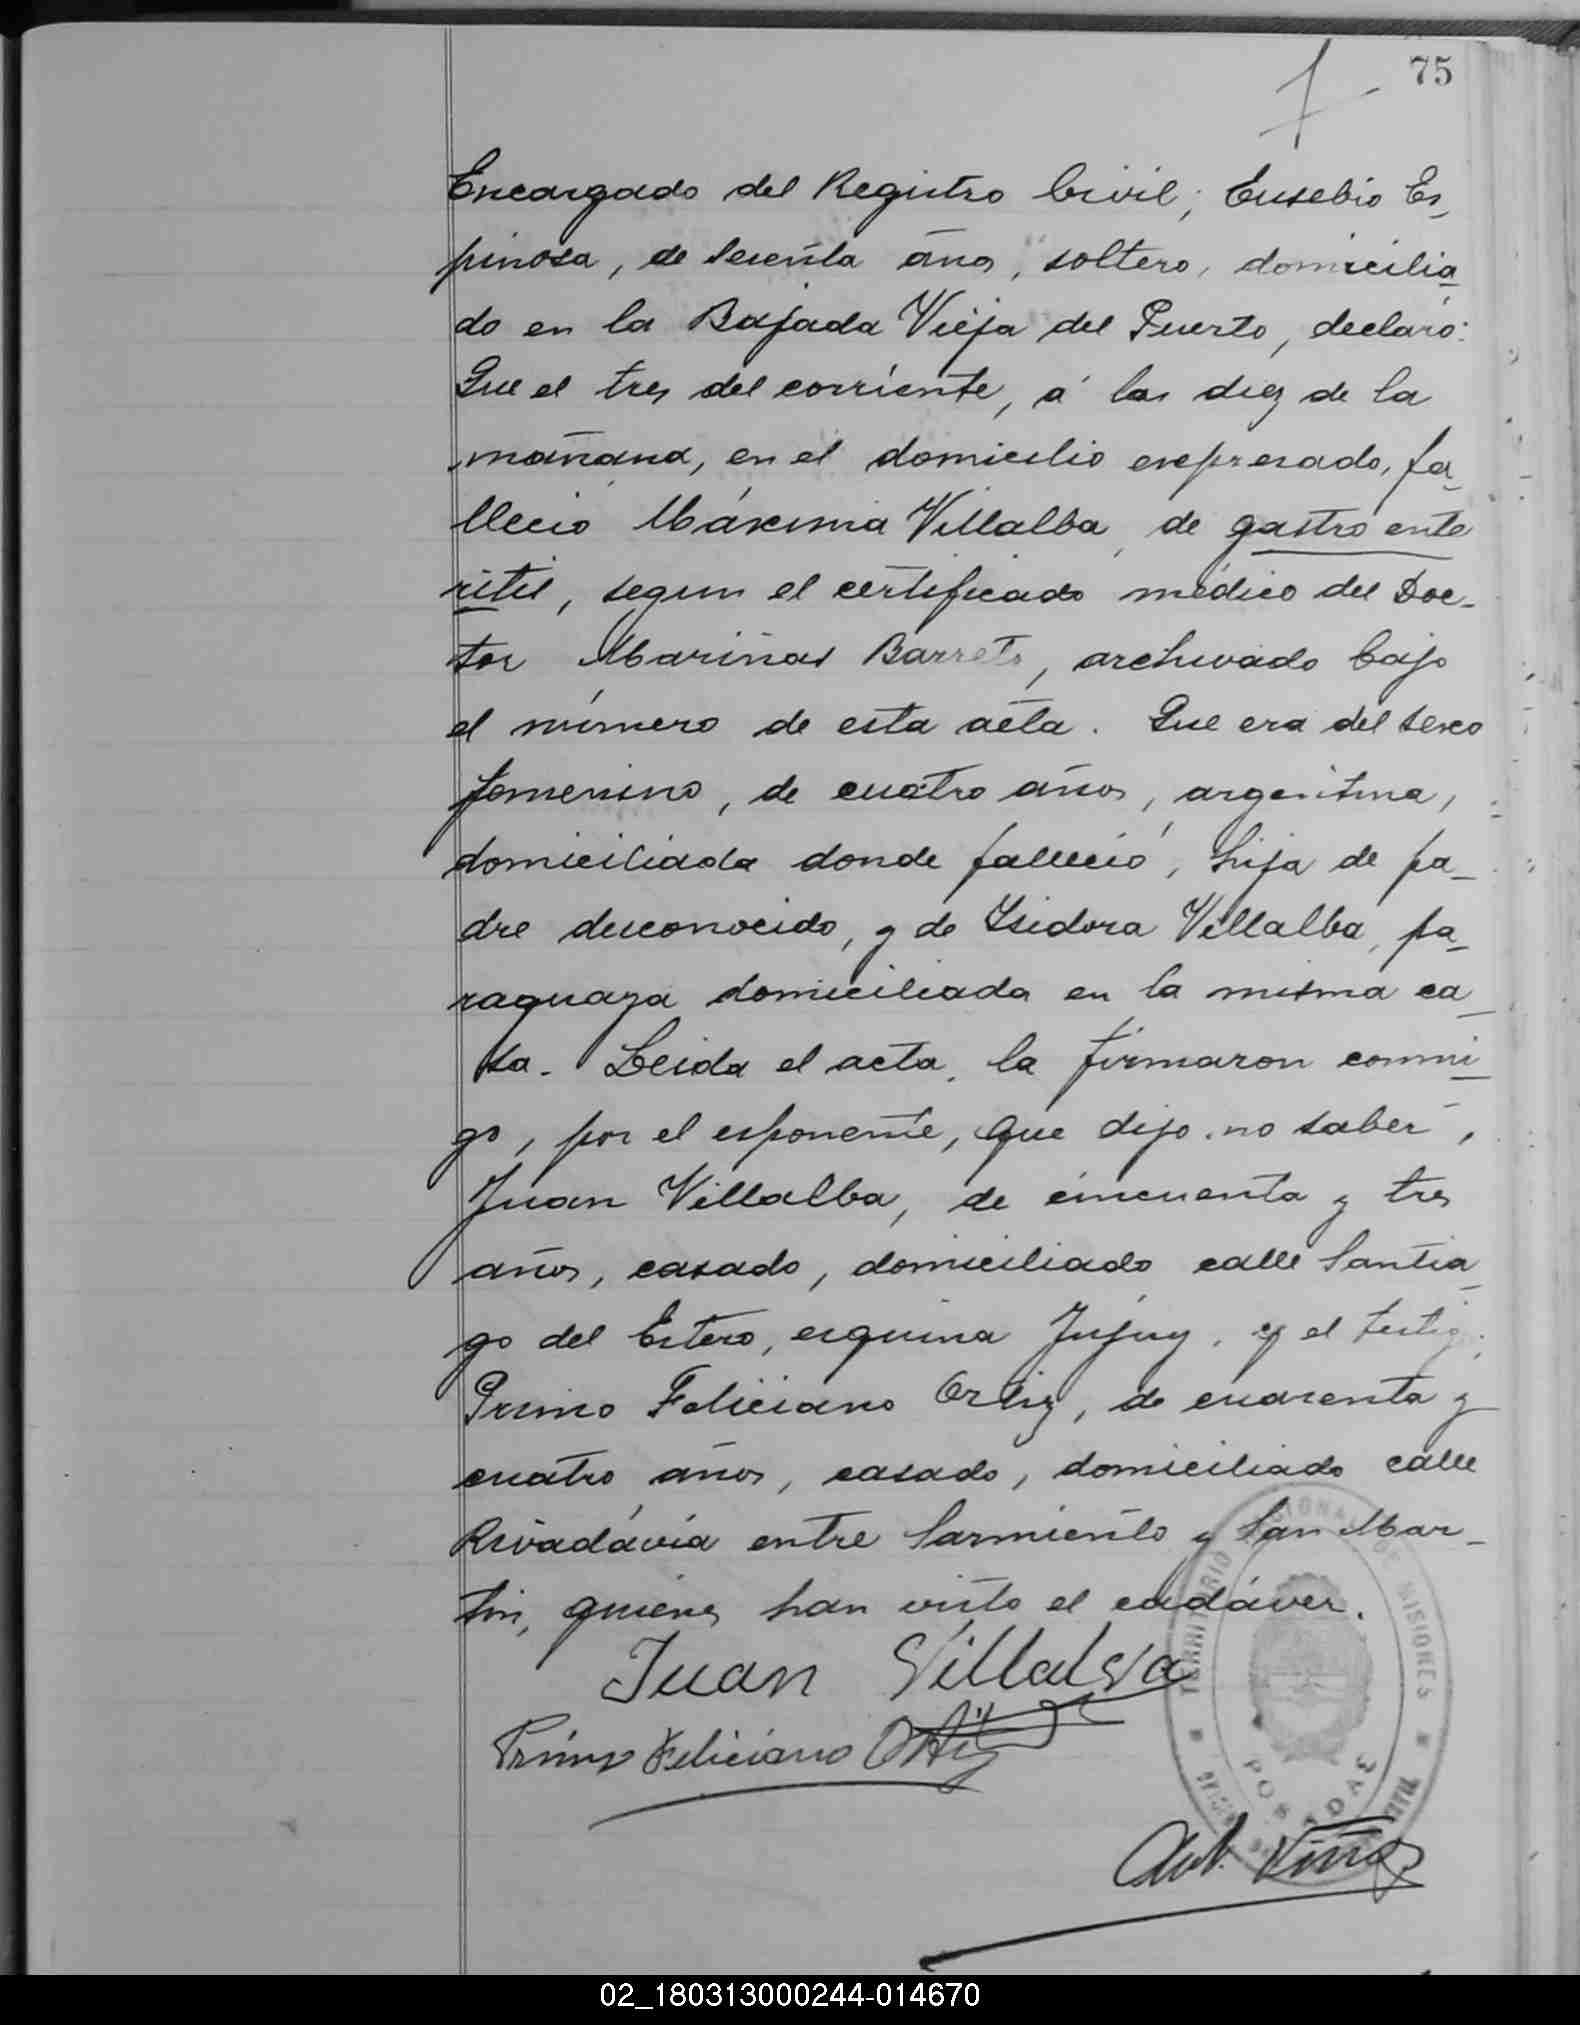 75
Encargado del Registro Civil; Eusebio Es-
pinosa, de sesenta años, soltero, domicilia-
do en la Bajada Vieja del Puerto, declaró:
Que el tres del corriente, á las diez de la
mañana, en el domicilio expresado, fa-
lleció Máxima Villalba, de gastro ente
ritis, segun el certificado médico del Doc-
tor Mariñas Barreto, archivado bajo
el número de esta acta. Que era del sexo
femenino, de cuatro años, argentina,
domiciliada donde falleció, hija de pa-
dre desconocido, y de Isidora Villalba, pa-
raguaya domiciliada en la misma ca-
sa. Leida el acta, la firmaron conmi-
go, por el esponente, que dijo no saber,
Juan Villalba, de cincuenta y tres
años, casado, domiciliado calle Santia-
go del Estero, esquina Jujuy, y el testigo
Primo Feliciano Ortiz, de cuarenta y
cuatro años, casado, domiciliado calle
Rivadavia entre Sarmiento y San Mar-
tin, quienes han visto el cadáver.
Juan Villalva
Primo Feliciano Ortiz
TERRITORIO NACIONAL DE MISIONES
POSADAS
02_180313000244-014670